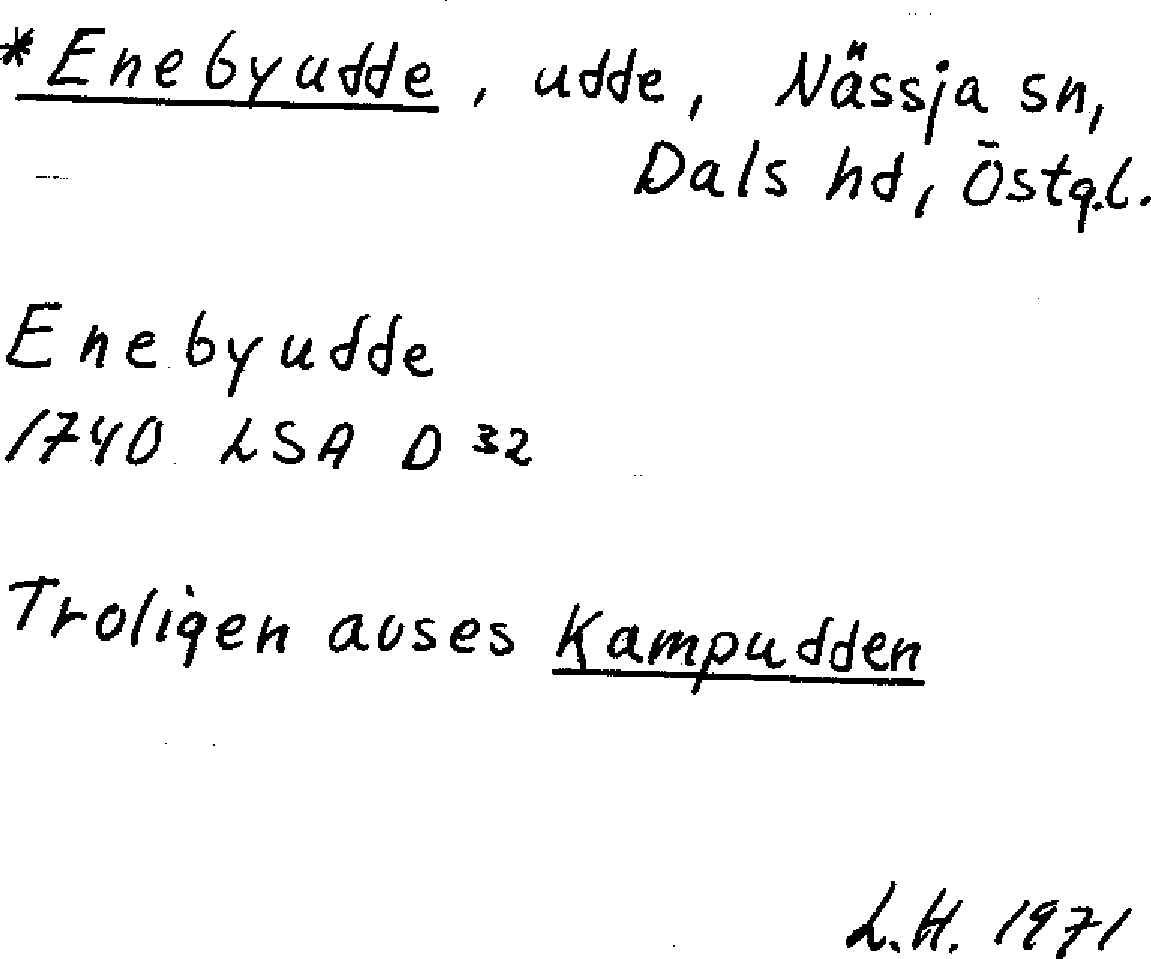 *Enebyudde, udde, Nässja sn,
Dals hd, Östg.l.
Enebyudde
1740 LSA D 32
Troligen avses Kampudden
L.H. 1971